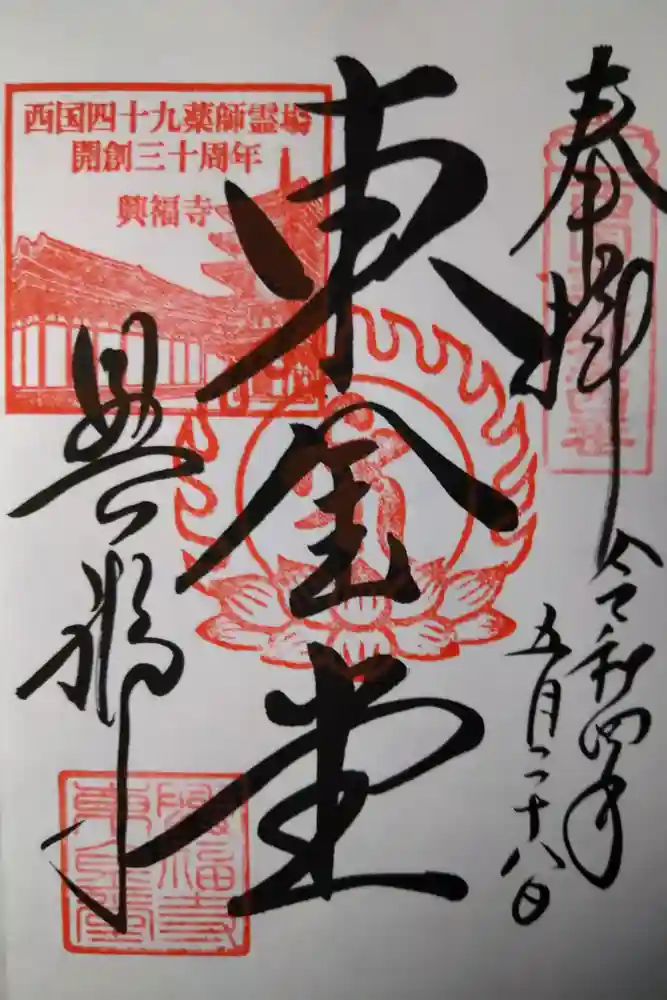 奉拝
令和四年
五月二十八日
東金堂
西国四十九薬師霊場
開創三十周年
興福寺
興福寺
興福寺
東金堂